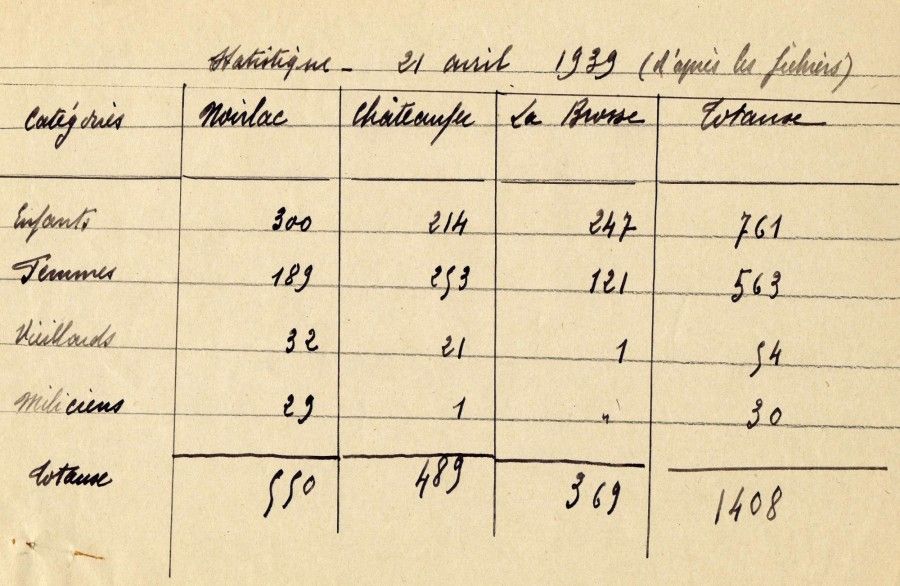 Statistique - 21 avril 1939 (d'après les fichiers)
Catégories Noirlac Châteaufer La Brosse Totaux
Enfants 300 214 247 761
Femmes 189 253 121 563
Vieillards 32 21 1 54
Miliciens 29 1 " 30
Totaux 550 489 369 1408